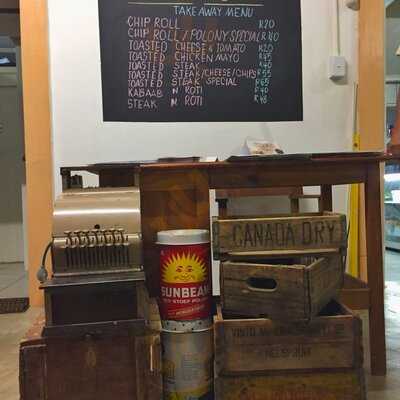 TAKE AWAY MENU
CHIP ROLL R20
CHIP ROLL / POLONY SPECIAL R40
TOASTED CHEESE & TOMATO R20
TOASTED CHICKEN MAYO R45
TOASTED STEAK R40
TOASTED STEAK/CHEESE/CHIPS R55
TOASTED STEAK SPECIAL R65
KABAAB N ROTI R40
STEAK N ROTI R48
CANADA DRY
SUNBEAM
NELSPRUIT